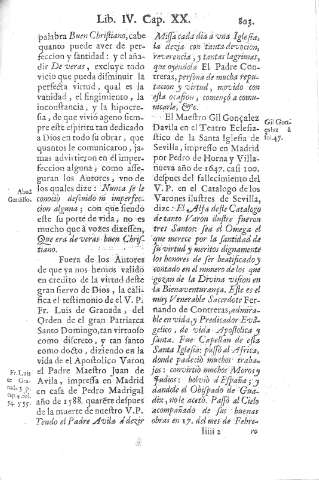 Lib. IV. Cap. XX. 803.
palabra Buen Christiano, cabe
quanto puede aver de per-
feccion y santidad: y el aña-
dir De veras, excluye todo
vicio que pueda disminuir la
perfecta virtud, qual es la
vanidad, el fingimiento, la
inconstancia, y la hipocre-
sia, de que vivió ageno siem-
pre este espiritu tan dedicado
a Dios en todo su obrar, que
quantos le comunicaron, ja-
mas advirtieron en él imper-
feccion alguna; como asse-
guran los Autores, vno de
los quales dize: Nunca se le
conoció desliño ni imperfec-
cion alguna; con que siendo
este su porte de vida, no es
mucho que à vozes dixessen,
Que era de veras buen Chris-
tiano.
Fuera de los Autores
de que ya nos hemos valido
en credito de la virtud deste
gran siervo de Dios, la cali-
fica el testimonio de el V. P.
Fr. Luis de Granada, del
Orden de el gran Patriarca
Santo Domingo, tan virtuoso
como discreto, y tan santo
como docto, diziendo en la
vida de el Apostolico Varon
el Padre Maestro Juan de
Avila, impressa en Madrid
en casa de Pedro Madrigal
año de 1588. quarẽte despues
de la muerte de nuestro V.P.
Teudo el Padre Avila à dezir
Abad
Gordillo.
Fr. Luis
de Gra-
Missa cada dia à vna Iglesia,
la dezia con tanta devocion,
reverencia, y tantas lagrimas,
que oyendola El Padre Con-
treras, persona de mucha repu-
tacion y virtud, movido con
esta ocasion, començó a comu-
nicarle, &c.
El Maestro Gil Gonçalez
Davila en el Teatro Eclesia-
stico de la Santa Iglesia de
Sevilla, impresso en Madrid
por Pedro de Horna y Villa-
nueva año de 1647. casi 100.
despues del fallecimiento del
V. P. en el Catalogo de los
Varones ilustres de Sevilla,
dize: El Alfa deste Catalogo
de tanto Varon ilustre fueron
tres Santos: sea el Omega el
que merece por la santidad de
su virtud y meritos dignamente
los honores de ser beatificado y
contado en el numero de los que
gozan de la Divina vision en
la Bienaventurança. Este es el
muy Venerable Sacerdote Fer-
nando de Contreras, admira-
ble en vida, y Predicador Evã-
gelico, de vida Apostolica y
santa. Fue Capellan de esta
Santa Iglesia: passó al Africa,
donde padeció muchos traba-
jos: convirtió muchos Moros y
Judios: bolvió à España; y
dandole el Obispado de Gua-
dix, no le aceto. Passó al Cielo
acompañado de sus buenas
obras en 17. del mes de Febre-
Iiiii 2 ro
Gil Gon-
çalez à
1647.